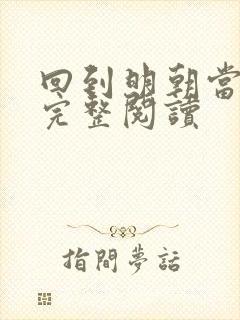 回到明朝當
完整閱讀
指間夢話